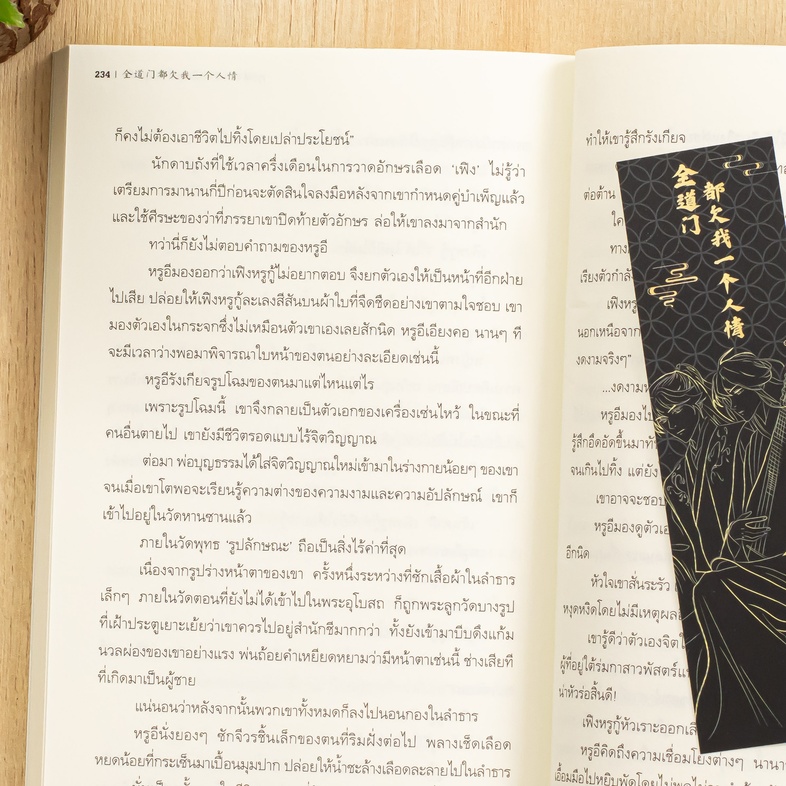 234 | 全道门都欠我一个人情
ก็คงไม่ต้องเอาชีวิตไปทิ้งโดยเปล่าประโยชน์”
นักดาบถังที่ใช้เวลาครึ่งเดือนในการวาดอักษรเลือด ‘เฟิง’ ไม่รู้ว่า
เตรียมการมานานกี่ปีก่อนจะตัดสินใจลงมือหลังจากเขากำหนดคู่บำเพ็ญแล้ว
และใช้ศีรษะของว่าที่ภรรยาเขาปิดท้ายตัวอักษร ล่อให้เขาลงมาจากสำนัก
ทว่านี่ก็ยังไม่ตอบคำถามของหรูอี
หรูอีมองออกว่าเฟิงหรูกู้ไม่อยากตอบ จึงยกตัวเองให้เป็นหน้าที่อีกฝ่าย
ไปเสีย ปล่อยให้เฟิงหรูกู้ละเลงสีสันบนผ้าใบที่จืดชืดอย่างเขาตามใจชอบ เขา
มองตัวเองในกระจกซึ่งไม่เหมือนตัวเขาเองเลยสักนิด หรูอีเอียงคอ นานๆ ที
จะมีเวลาว่างพอมาพิจารณาใบหน้าของตนอย่างละเอียดเช่นนี้
หรูอีรังเกียจรูปโฉมของตนมาแต่ไหนแต่ไร
เพราะรูปโฉมนี้ เขาจึงกลายเป็นตัวเอกของเครื่องเซ่นไหว้ ในขณะที่
คนอื่นตายไป เขายังมีชีวิตรอดแบบไร้จิตวิญญาณ
ต่อมา พ่อบุญธรรมได้ใส่จิตวิญญาณใหม่เข้ามาในร่างกายน้อยๆ ของเขา
จนเมื่อเขาโตพอจะเรียนรู้ความต่างของความงามและความอัปลักษณ์ เขาก็
เข้าไปอยู่ในวัดหานซานแล้ว
ภายในวัดพุทธ ‘รูปลักษณะ’ ถือเป็นสิ่งไร้ค่าที่สุด
เนื่องจากรูปร่างหน้าตาของเขา ครั้งหนึ่งระหว่างที่ซักเสื้อผ้าในลำธาร
เล็กๆ ภายในวัดตอนที่ยังไม่ได้เข้าไปในพระอุโบสถ ก็ถูกพระลูกวัดบางรูป
ที่เฝ้าประตูเยาะเย้ยว่าเขาควรไปอยู่สำนักชีมากกว่า ทั้งยังเข้ามาบีบดึงแก้ม
นวลผ่องของเขาอย่างแรง พ่นถ้อยคำเหยียดหยามว่ามีหน้าตาเช่นนี้ ช่างเสียที
ที่เกิดมาเป็นผู้ชาย
แน่นอนว่าหลังจากนั้นพวกเขาทั้งหมดก็ลงไปนอนกองในลำธาร
หรูอีนั่งยองๆ ซักจีวรชิ้นเล็กของตนที่ริมฝั่งต่อไป พลางเช็ดเลือด
หยดน้อยที่กระเซ็นมาเปื้อนมุมปาก ปล่อยให้น้ำชะล้างเลือดละลายไปในลำธาร
ทำให้เขารู้สึกรังเกียจ
ต่อต้าน
ทาง
เรียงตัวกำลัง
เฟิงหรู
นอกเหนือจาก
งดงามจริงๆ”
...งดงาม
หรูอีมองไป
รู้สึกอึดอัดขึ้นมา
จนเกินไปทิ้ง แต่ยัง
เขาอาจจะชอบ
หรูอีมองดูตัวเอ
อีกนิด
หัวใจเขาสั่นระรัว
หงุดหงิดโดยไม่มีเหตุผล
เขารู้ดีว่าตัวเองจิต
ผู้ที่อยู่ใต้ร่มกาสาวพัสตร์
น่าหัวร่อสิ้นดี!
เฟิงหรูกู้หัวเราะออก
หรูอีคิดถึงความเชื่อมโยงต่างๆ
全道门
都欠我一个人情